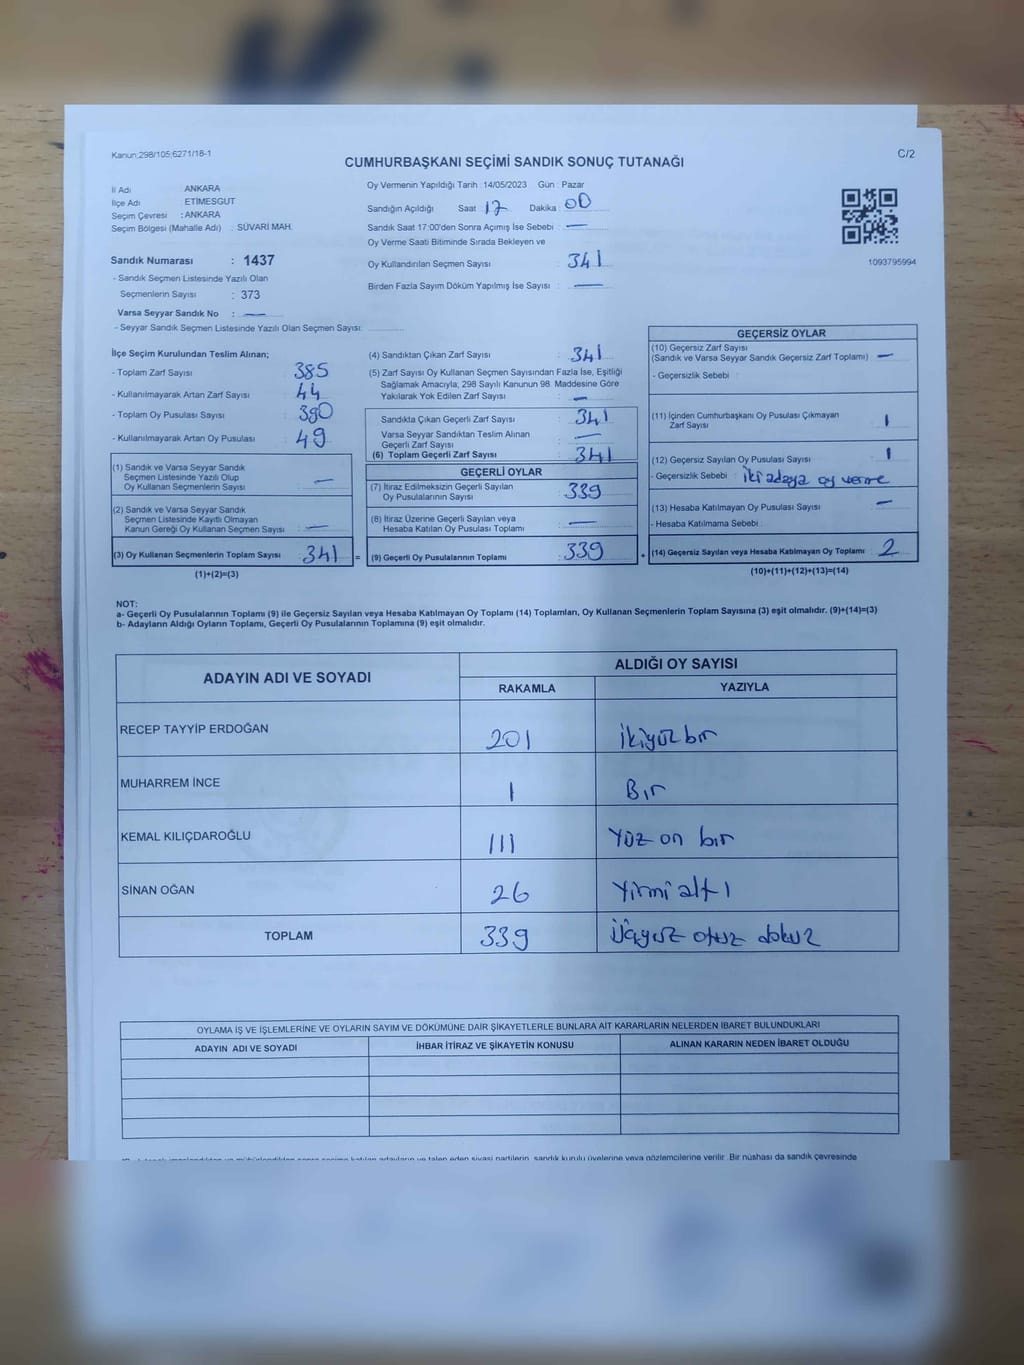 Kanun:298/105;6271/18-1
CUMHURBAŞKANI SEÇİMİ SANDIK SONUÇ TUTANAĞI
C/2
İl Adı ANKARA
İlçe Adı : ETİMESGUT
Seçim Çevresi : ANKARA
Seçim Bölgesi (Mahalle Adı) : SÜVARİ MAH.
Oy Vermenin Yapıldığı Tarih :14/05/2023 Gün : Pazar
Sandığın Açıldığı Saat 17 Dakika : 00
Sandık Saat 17:00'den Sonra Açımış İse Sebebi : —
Oy Verme Saati Bitiminde Sırada Bekleyen ve
Oy Kullandırılan Seçmen Sayısı : 341
Birden Fazla Sayım Döküm Yapılmış İse Sayısı : —
1093795994
Sandık Numarası : 1437
- Sandık Seçmen Listesinde Yazılı Olan
Seçmenlerin Sayısı : 373
Varsa Seyyar Sandık No : —
- Seyyar Sandık Seçmen Listesinde Yazılı Olan Seçmen Sayısı:
İlçe Seçim Kurulundan Teslim Alınan;
- Toplam Zarf Sayısı : 385
- Kullanılmayarak Artan Zarf Sayısı : 44
- Toplam Oy Pusulası Sayısı : 390
- Kullanılmayarak Artan Oy Pusulası : 49
(1) Sandık ve Varsa Seyyar Sandık
Seçmen Listesinde Yazılı Olup
Oy Kullanan Seçmenlerin Sayısı : —
(2) Sandık ve Varsa Seyyar Sandık
Seçmen Listesinde Kayıtlı Olmayan
Kanun Gereği Oy Kullanan Seçmen Sayısı : —
(3) Oy Kullanan Seçmenlerin Toplam Sayısı : 341 =
(1)+(2)=(3)
(4) Sandıktan Çıkan Zarf Sayısı : 341
(5) Zarf Sayısı Oy Kullanan Seçmen Sayısından Fazla İse, Eşitliği
Sağlamak Amacıyla; 298 Sayılı Kanunun 98. Maddesine Göre
Yakılarak Yok Edilen Zarf Sayısı : —
Sandıkla Çıkan Geçerli Zarf Sayısı : 341
Varsa Seyyar Sandıktan Teslim Alınan
Geçerli Zarf Sayısı : —
(6) Toplam Geçerli Zarf Sayısı : 341
GEÇERLİ OYLAR
(7) İtiraz Edilmeksizin Geçerli Sayılan
Oy Pusulalarının Sayısı : 339
(8) İtiraz Üzerine Geçerli Sayılan veya
Hesaba Katılan Oy Pusulası Toplamı : —
(9) Geçerli Oy Pusulalarının Toplamı : 339 +
GEÇERSİZ OYLAR
(10) Geçersiz Zarf Sayısı
(Sandık ve Varsa Seyyar Sandık Geçersiz Zarf Toplamı) : —
- Geçersizlik Sebebi :
(11) İçinden Cumhurbaşkanı Oy Pusulası Çıkmayan
Zarf Sayısı : 1
(12) Geçersiz Sayılan Oy Pusulası Sayısı : 1
- Geçersizlik Sebebi : İki adaya oy verme
(13) Hesaba Katılmayan Oy Pusulası Sayısı : —
- Hesaba Katılmama Sebebi :
(14) Geçersiz Sayılan veya Hesaba Katılmayan Oy Toplamı : 2
(10)+(11)+(12)+(13)=(14)
NOT:
a- Geçerli Oy Pusulalarının Toplamı (9) ile Geçersiz Sayılan veya Hesaba Katılmayan Oy Toplamı (14) Toplamları, Oy Kullanan Seçmenlerin Toplam Sayısına (3) eşit olmalıdır. (9)+(14)=(3)
b- Adayların Aldığı Oyların Toplamı, Geçerli Oy Pusulalarının Toplamına (9) eşit olmalıdır.
ADAYIN ADI VE SOYADI ALDIĞI OY SAYISI
RAKAMLA YAZIYLA
RECEP TAYYİP ERDOĞAN 201 İkiyüz bir
MUHARREM İNCE 1 Bir
KEMAL KILIÇDAROĞLU 111 Yüz on bir
SİNAN OĞAN 26 Yirmi altı
TOPLAM 339 Üçyüz otuz dokuz
OYLAMA İŞ VE İŞLEMLERİNE VE OYLARIN SAYIM VE DÖKÜMÜNE DAİR ŞİKAYETLERLE BUNLARA AİT KARARLARIN NELERDEN İBARET BULUNDUKLARI
ADAYIN ADI VE SOYADI İHBAR İTİRAZ VE ŞİKAYETİN KONUSU ALINAN KARARIN NEDEN İBARET OLDUĞU
sandık kurulu üyelerine veya gözlemcilerine verilir .Bir nüshası da sandık çevresinde